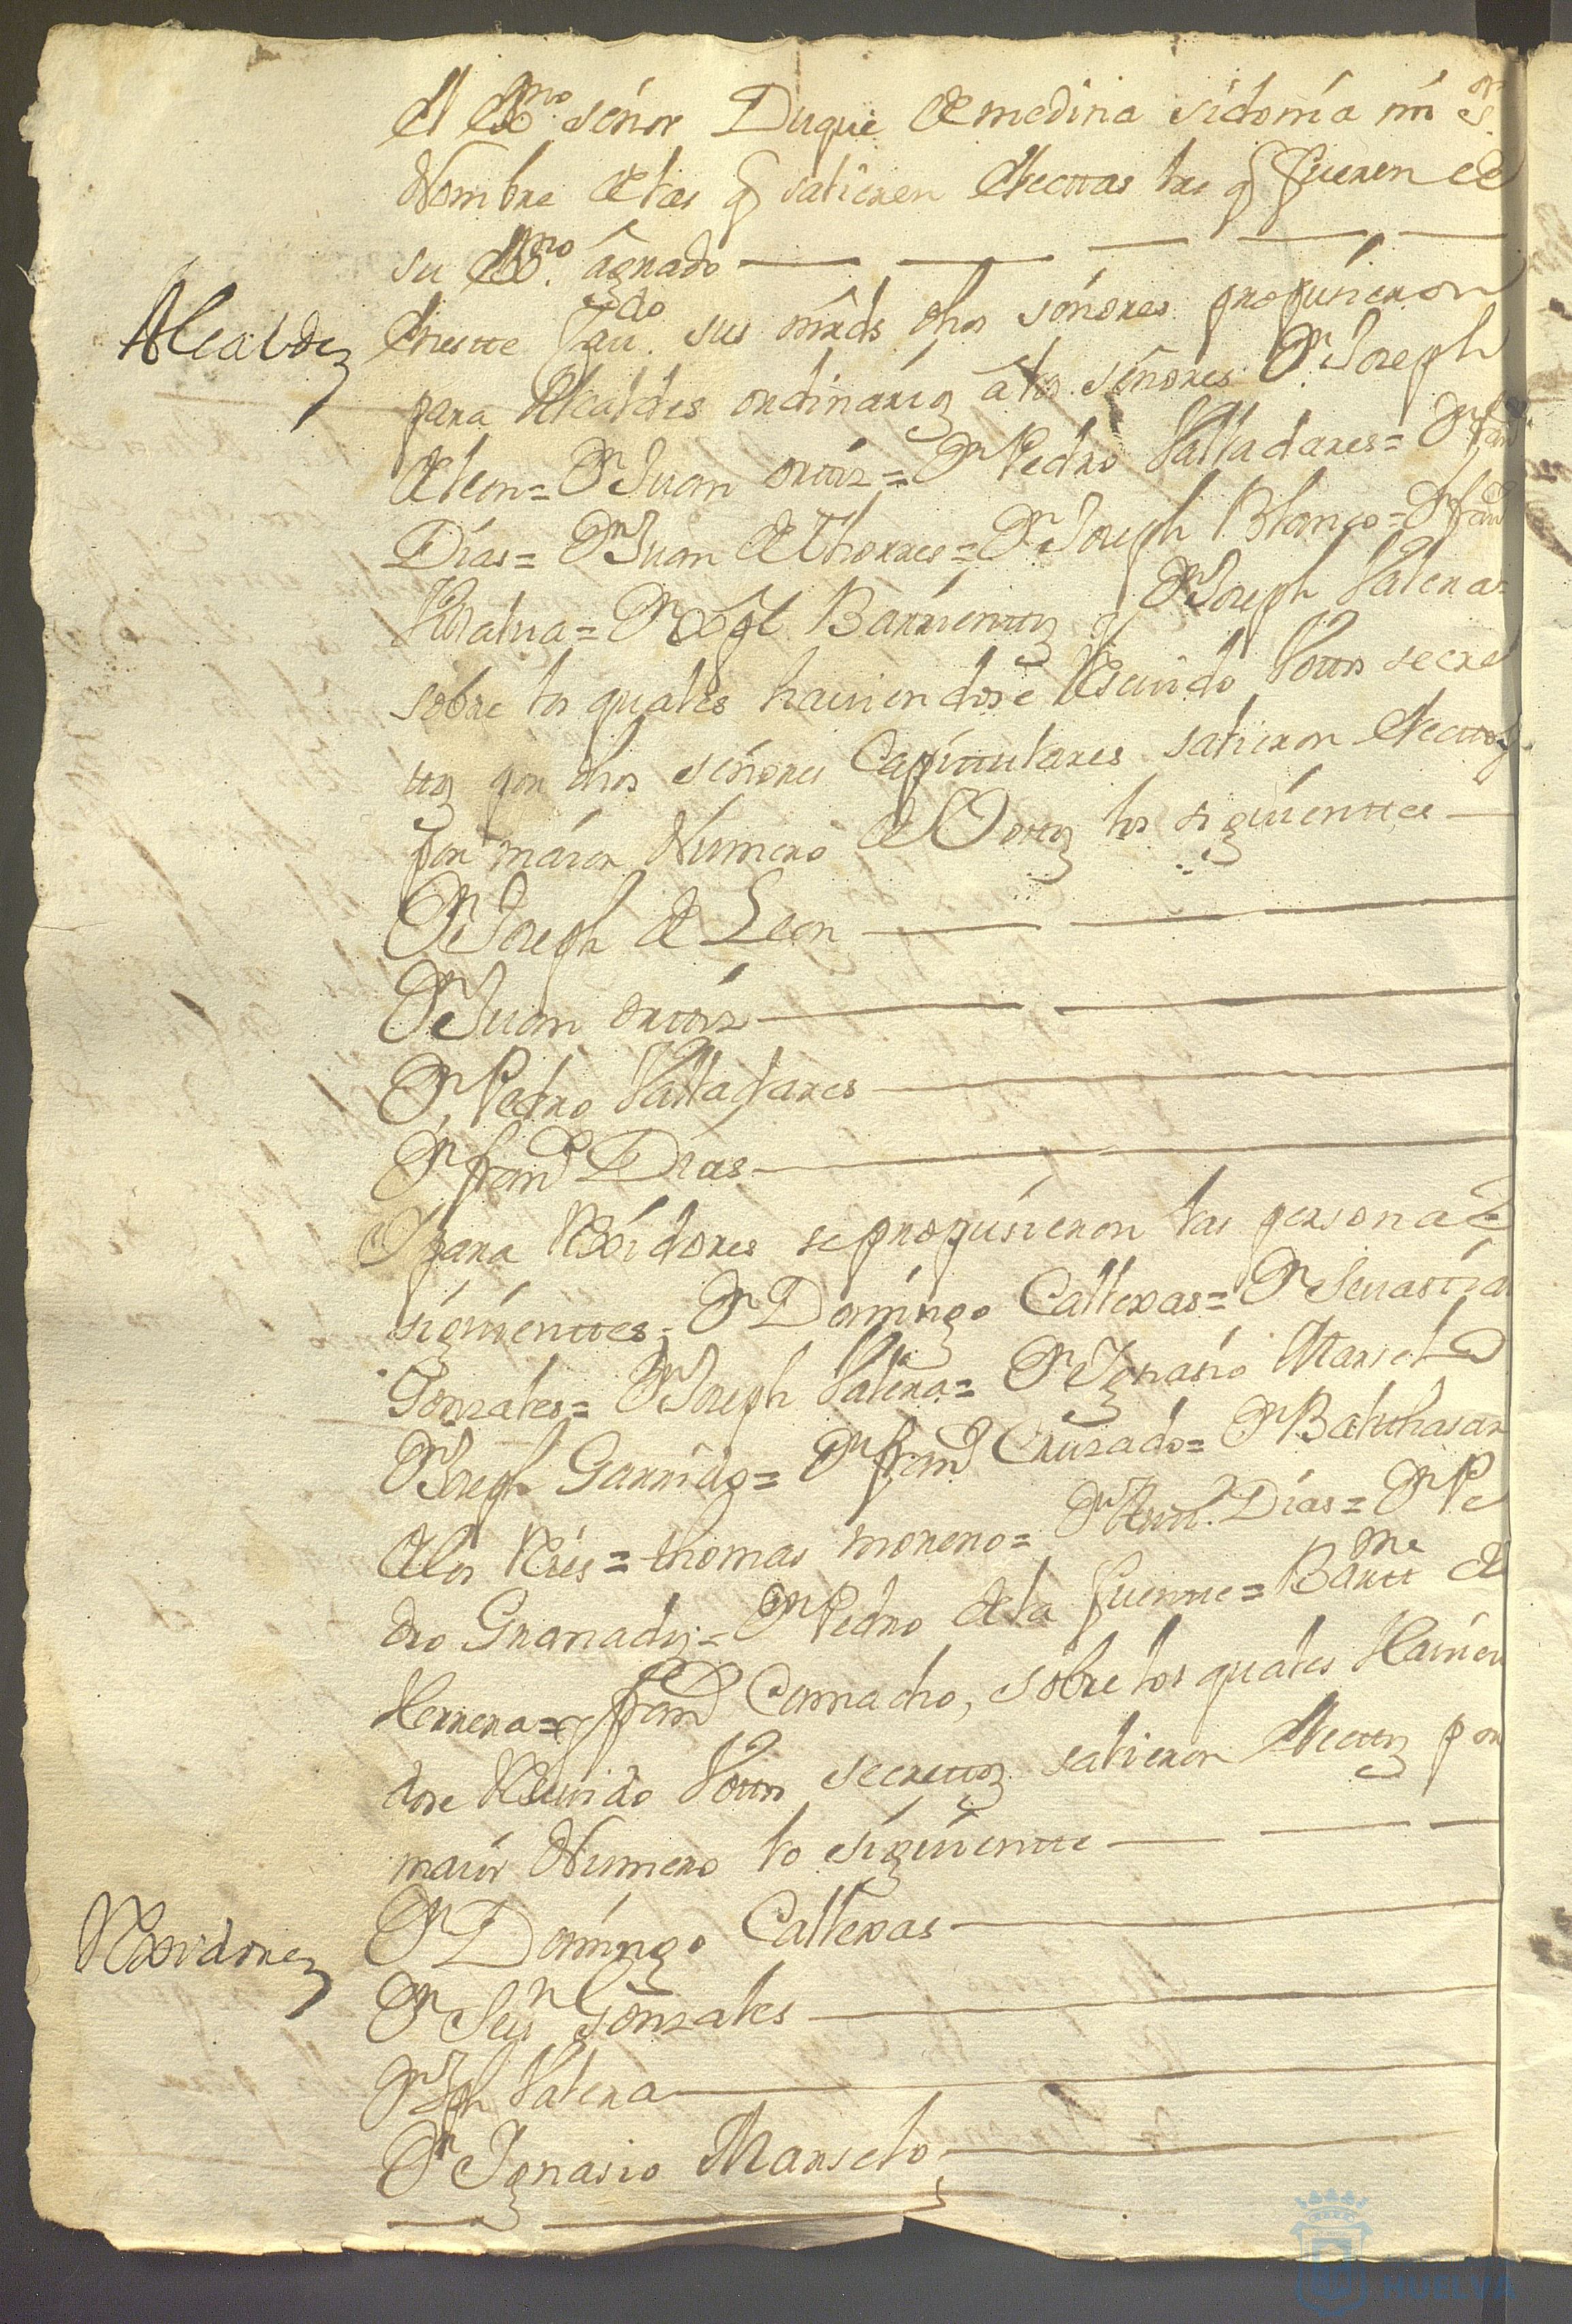 el exmo señor Duque de medina sidonia mi sr.
Nombre de las q salieren electtas las q fueren de
su exmo. agrado
Alcaldes
en estte estado sus mrds dhos señores propusieron
para Alcaldes ordinarios a los señores Dn Joseph
de leon = Dn Juan orttiz = Dn Pedro Valladares = Dn franco
Dias = Dn Juan de Thorres = Dn Joseph Blanco = Dn franco
Dn Xptl Barrienttos y Dn Joseph Valera =
sobre los quales haviendose Resevido Vottos secre
ttos por dhos señores Capittulares salieron electtos
por maior Numero de Vottos los siguienttes
Dn Joseph de Leon
Dn Juan orttiz
Dn Pedro Valladares
Dn franco Dias
Y para Rexidores se propusieron las personas
siguienttes, Dn Domingo Callexas = Dn Sevastian
Gonzales = Dn Joseph Valera = Dn Ygnasio Marselo
Dn Joseph Garrido = Dn franco Cruzado = Dn Balthasar
de los Ries = thomas moreno = Dn Antt. Dias = Dn Pe
dro Granados = Dn Pedro de la fuentte = Bartt me de
Herrera = y franco Camacho, sobre los quales Havien
dose Resevido Vottos secrettos salieron electtos por
maior Numero lo siguientte
Rexidores
Dn Domingo Callexas
Dn Sevn Gonzales
Dn Jph Valera
Dn Ygnasio Marselo
HUELVA